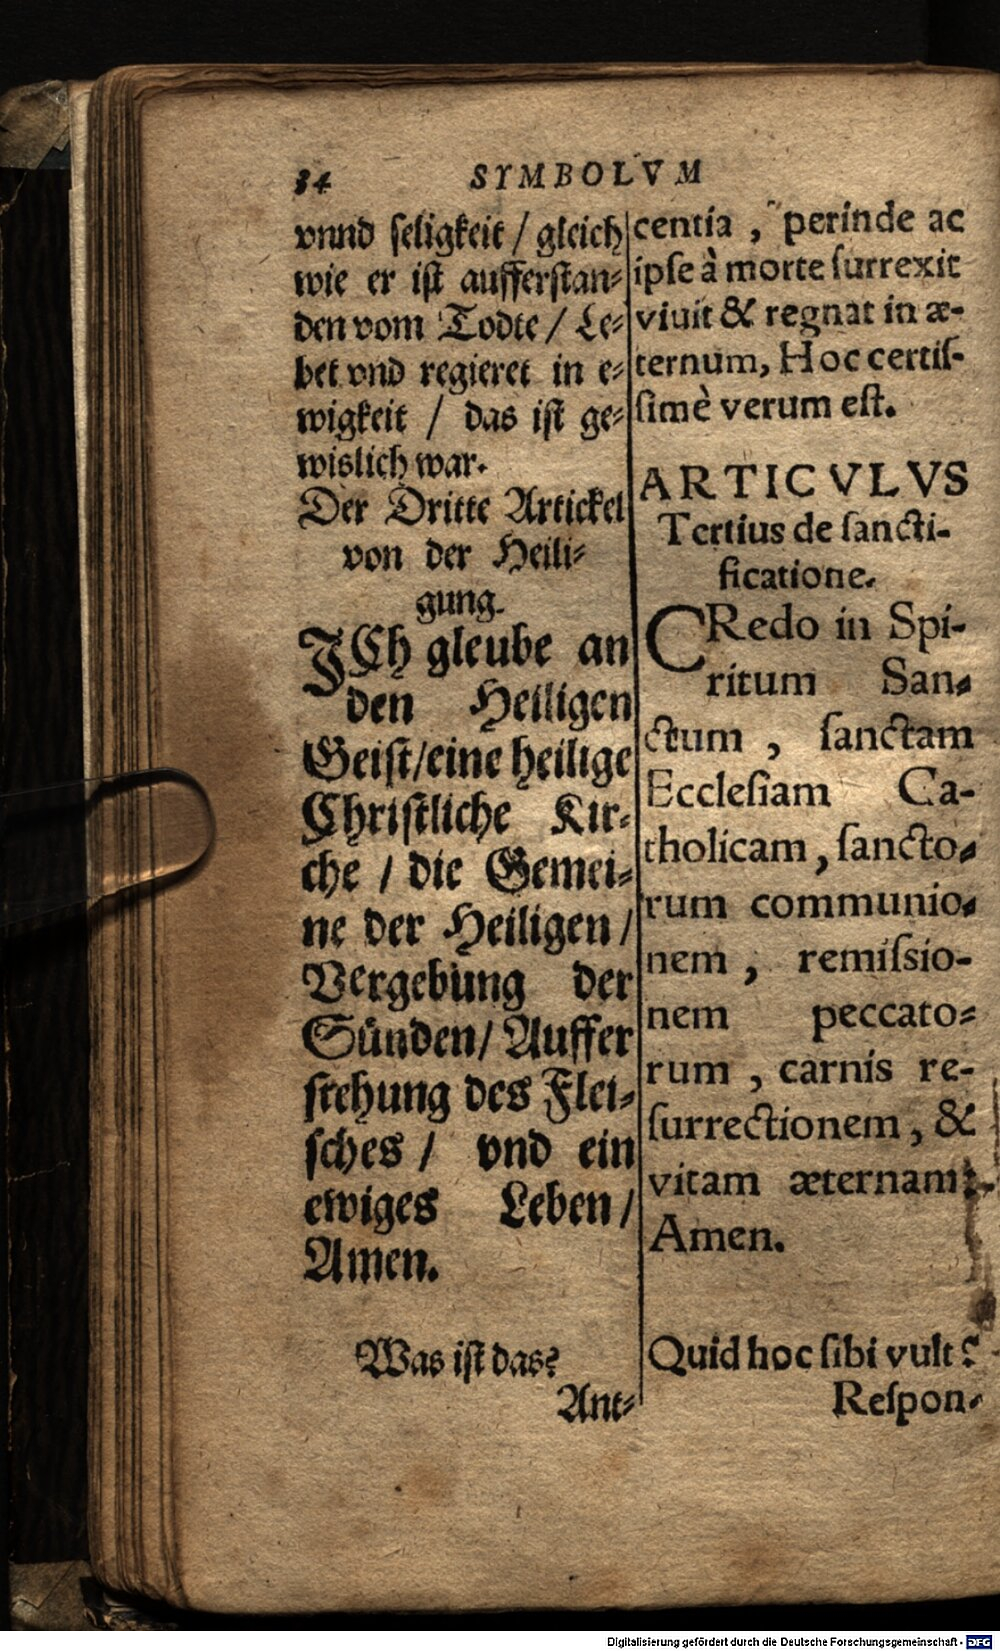 34 SYMBOLVM
vnnd seligkeit / gleich
wie er ist aufferstan⸗
den vom Todte / Le⸗
bet vnd regieret in e⸗
wigkeit / das ist ge⸗
wislich war.
Der Dritte Artickel
von der Heili⸗
gung.
JCh gleube an
den Heiligen
Geist/eine heilige
Christliche Kir⸗
che / die Gemei⸗
ne der Heiligen /
Vergebung der
Sünden/ Auffer
stehung des Flei⸗
sches / vnd ein
ewiges Leben /
Amen.
Was ist das?
Ant⸗
centia , perinde ac
ipſe à morte ſurrexit
viuit & regnat in æ-
ternum, Hoc certiſ-
ſimè verum eſt.
ARTICVLVS
Tertius de ſancti-
ficatione.
CRedo in Spi-
ritum San⸗
ctum , ſanctam
Eccleſiam Ca-
tholicam , ſancto⸗
rum communio⸗
nem , remiſsio-
nem peccato⸗
rum , carnis re-
ſurrectionem , &
vitam æternam
Amen.
Quid hoc ſibi vult?
Reſpon-
Digitalisierung gefördert durch die Deutsche Forschungsgemeinschaft - DFG